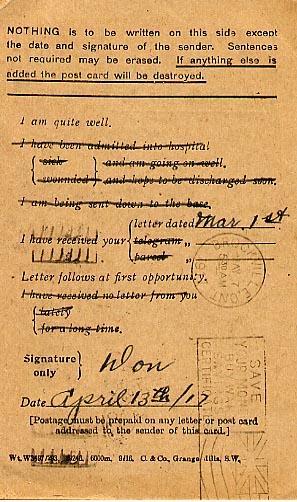 NOTHING is to be written on this side except
the date and signature of the sender. Sentences
not required may be erased. If anything else is
added the post card will be destroyed.
I am quite well.
I have been admitted into hospital
sick and am going on well.
wounded and hope to be discharged soon.
I am being sent down to the base.
letter dated Mar. 1st
I have received your telegram „
parcel „
Letter follows at first opportunity.
I have received no letter from you
lately
for a long time.
Signature
only
Don
Date April 13th/17
[Postage must be prepaid on any letter or post card
addressed to the sender of this card.]
6000m. 9/16. C. & Co., Grange Mills, S.W.
SAVE